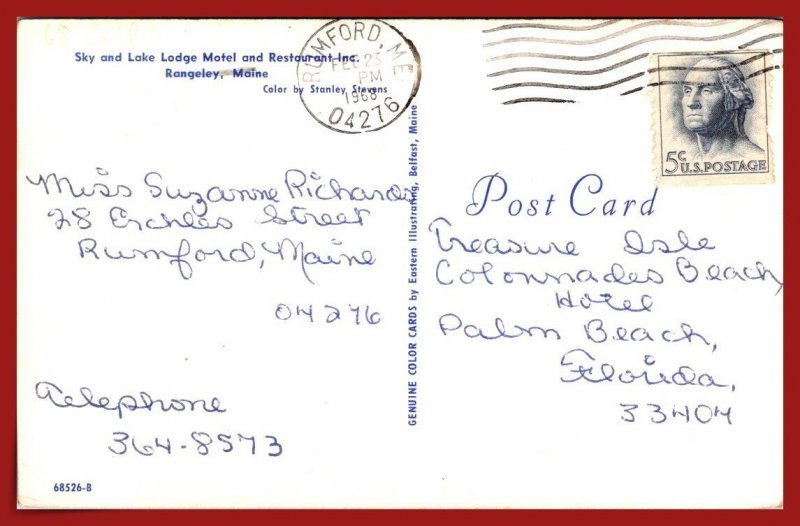 Sky and Lake Lodge Motel and Restaurant Inc.
Rangeley, Maine
Color by Stanley Stevens
RUMFORD, ME
FEB 25
PM
1968
04276
5c
U.S. POSTAGE
Miss Suzanne Richards
28 Erchles Street
Rumford, Maine
04276
Telephone
364-8573
68526-B
GENUINE COLOR CARDS by Eastern Illustrating, Belfast, Maine
Post Card
Treasure Isle
Colonnades Beach
Hotel
Palm Beach,
Florida,
33404